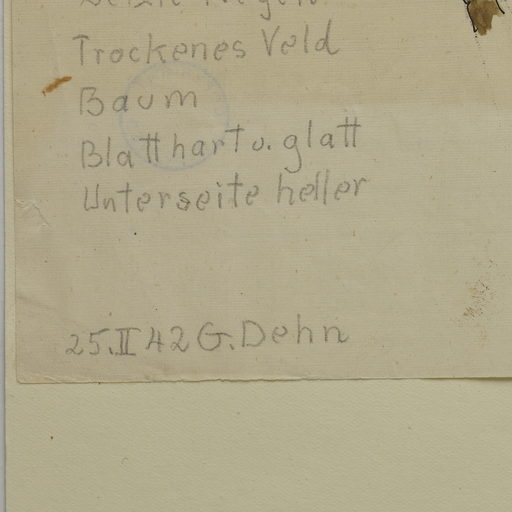 Trockenes Veld
Baum
Blatt hart u. glatt
Unterseite heller
25.II 42 G. Dehn